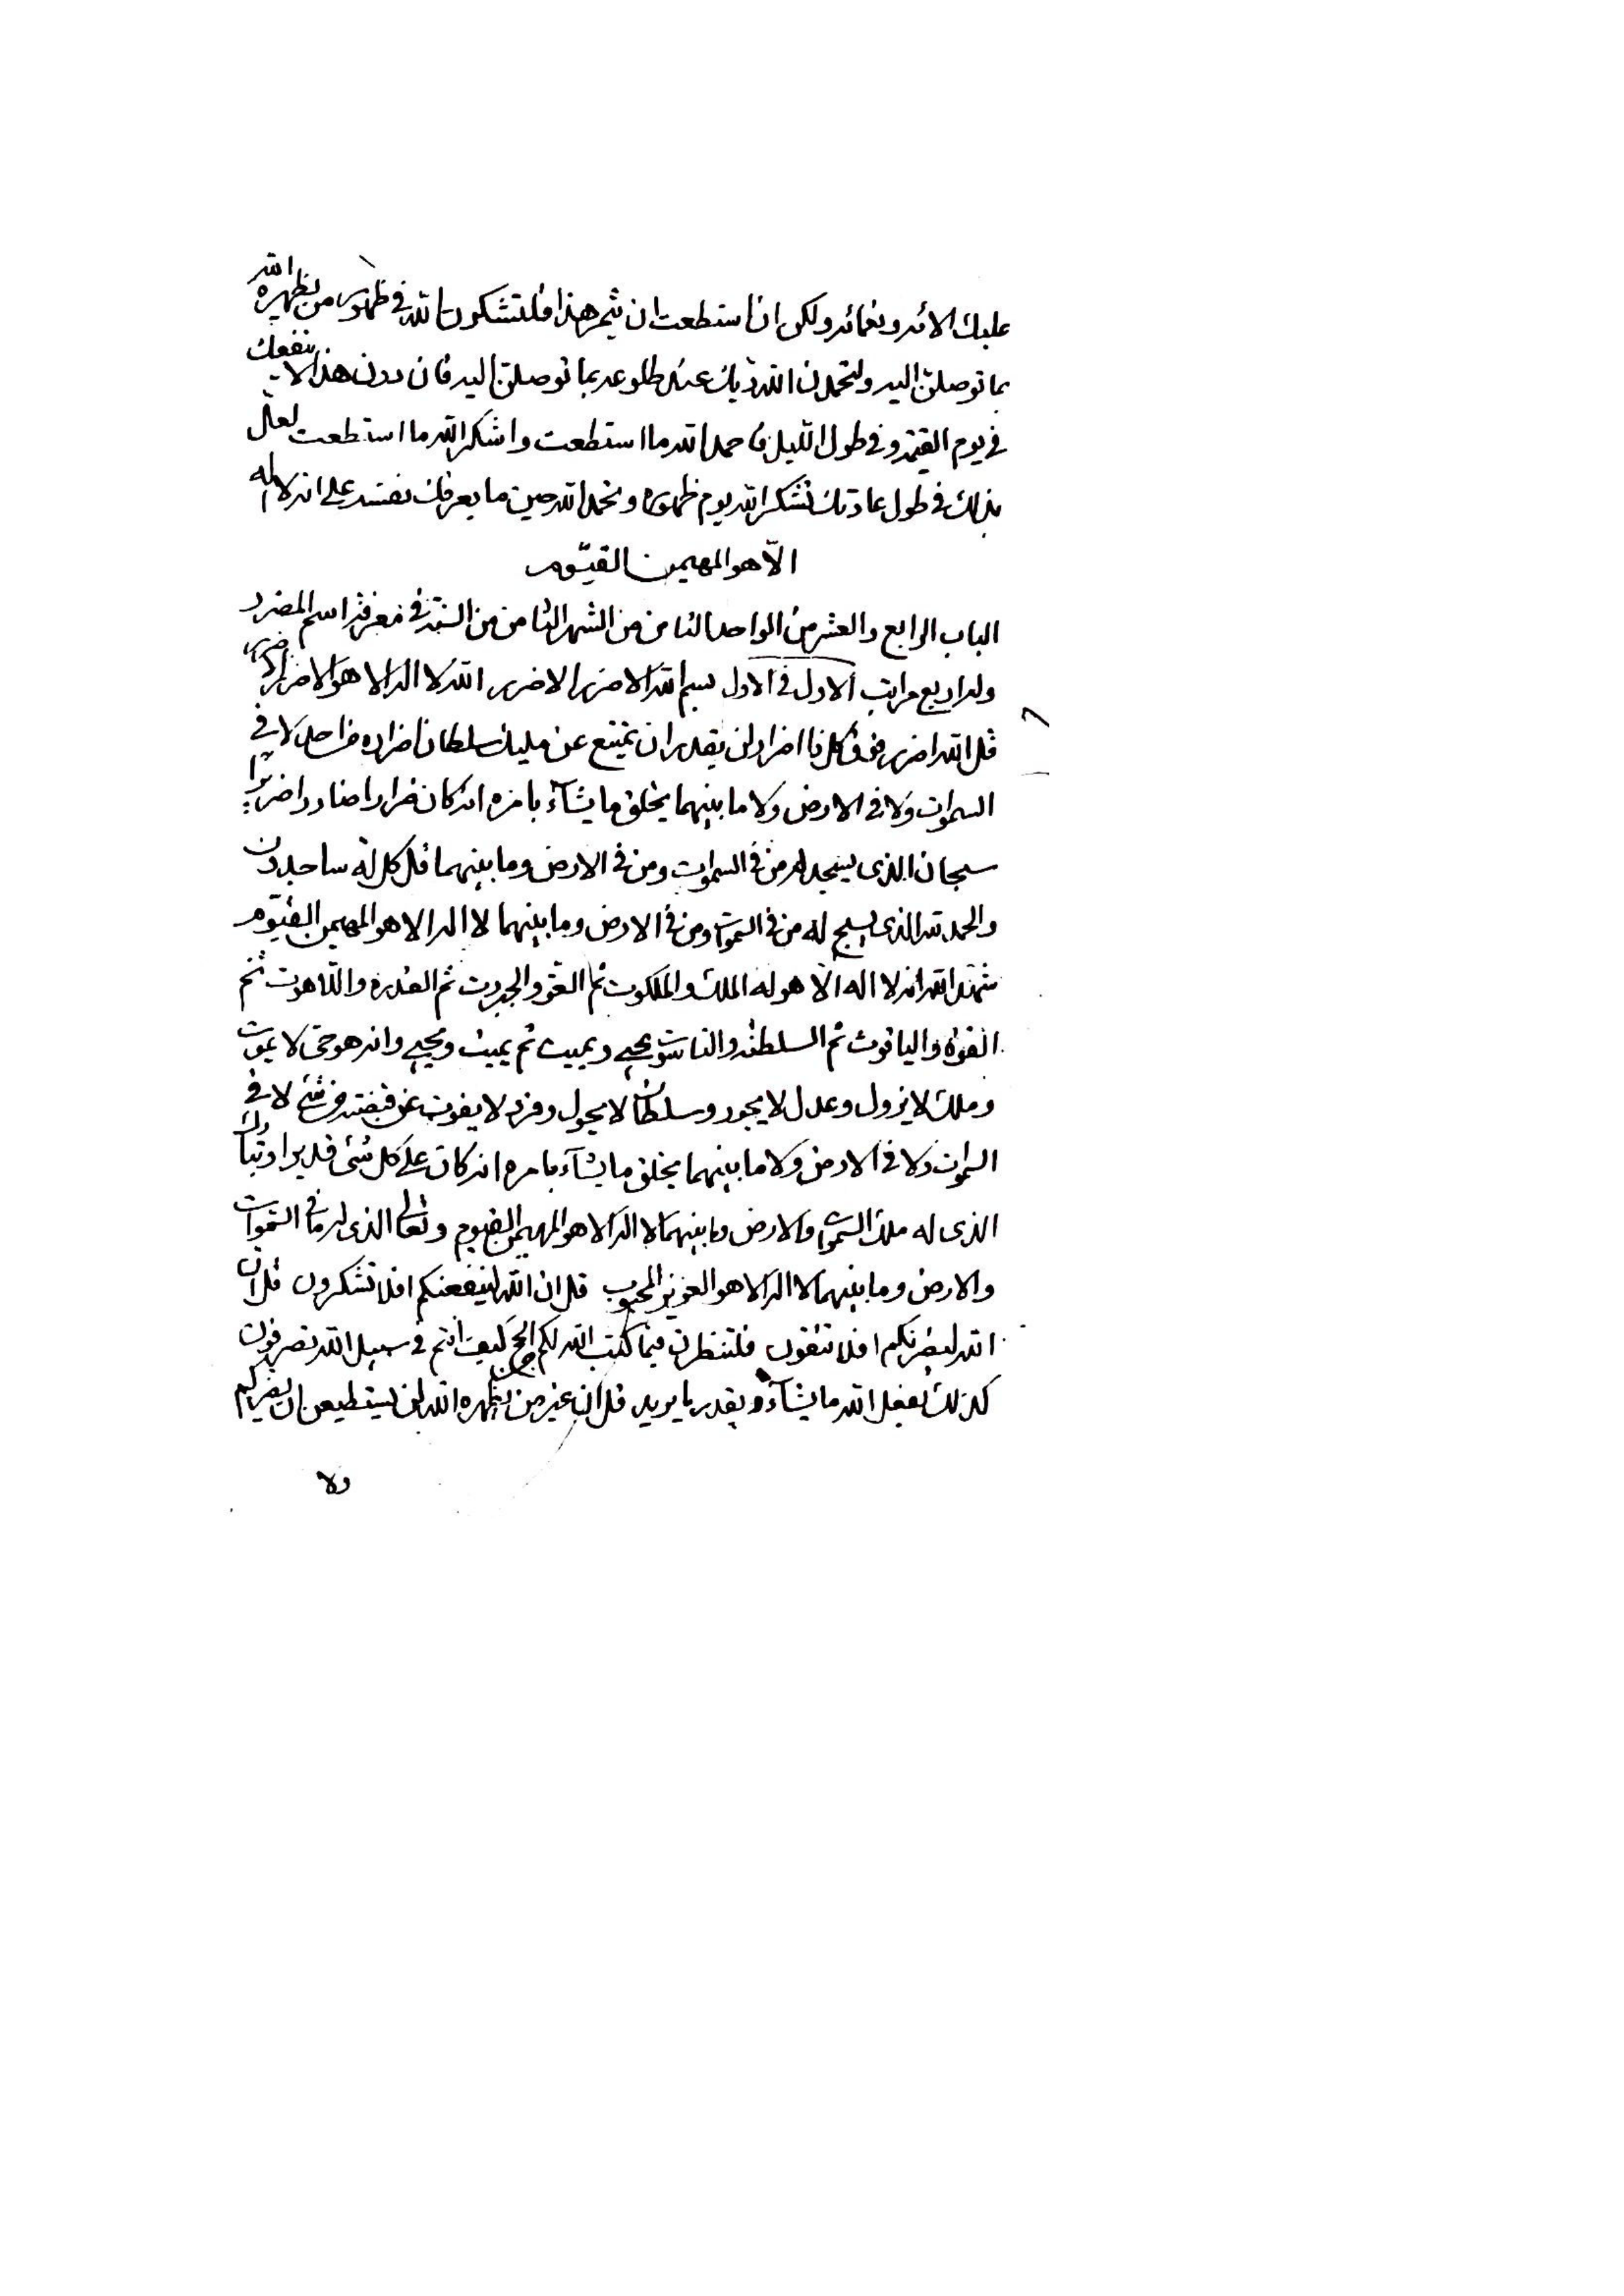 عليك الائه ونعمائه ولكن ان استطعت ان تثمر هذا فلتشكرن الله في ظهور من يظهره الله
بما توصلن اليه ولتحمدن الله ربك عند طلوعه بما توصلن اليه فان دون هذا لا ينفعك
في يوم القيمة وفي طول الليل فاحمد الله ما استطعت واشكر الله ما استطعت لعل
بذلك في طول عادتك تشكر الله يوم ظهوره وتحمد الله حين ما يعرفك نفسه على انه لا اله
الّا هو المهيمن القيّوم
الباب الرابع والعشر من الواحد الثامن من الشهر الثامن من السنة في معرفة اسم المضرد
وله اربع مراتب الاول في الاول بسم الله الاضرر الاضرر الله لا اله الا هو الاضرر الاضرر
قل الله اضرر فوق كل ذا اضرار لن يقدر ان يمتنع عن مليك سلطان اضراره من احد لا في
السموات ولا في الارض ولا ما بينهما يخلق ما يشآء بامره انه كان ضرارا ضاررا ضريرا
سبحان الذي يسجد له من في السموات ومن في الارض وما بينهما قل كل له ساجدون
والحمد لله الذي يسبح له من في السموات ومن في الارض وما بينهما لا اله الا هو المهيمن القيّوم
شهد الله انه لا اله الّا هو له الملك والملكوت ثم العز والجبروت ثم القدرة واللاهوت ثم
القوة والياقوت ثم السلطنة والناسوت يحيي ويميت ثم يميت ويحيي وانه هو حي لا يموت
وملك لا يزول وعدل لا يجور وسلطان لا يحول وفرد لا يفوت عن قبضته من شئ لا في
السموات ولا في الارض ولا ما بينهما يخلق ما يشآء بامره انه كان على كل شئ قديرا وتبارك
الذي له ملك السموات والارض وما بينهما لا اله الا هو المهيمن القيوم وتعالى الذي له ما في السموات
والارض وما بينهما لا اله الا هو العزيز المحبوب قل ان الله لينفعنكم افلا تشكرون قل ان
الله ليضرنكم افلا تتقون فلتنظرن فيما كتب الله لكم الحج كيف انتم في سبيل الله تصرفون
كذلك يفعل الله ما يشآء ويقدر ما يريد قل ان غير من يظهره الله لن يستطيعن ان يضركم
ولا